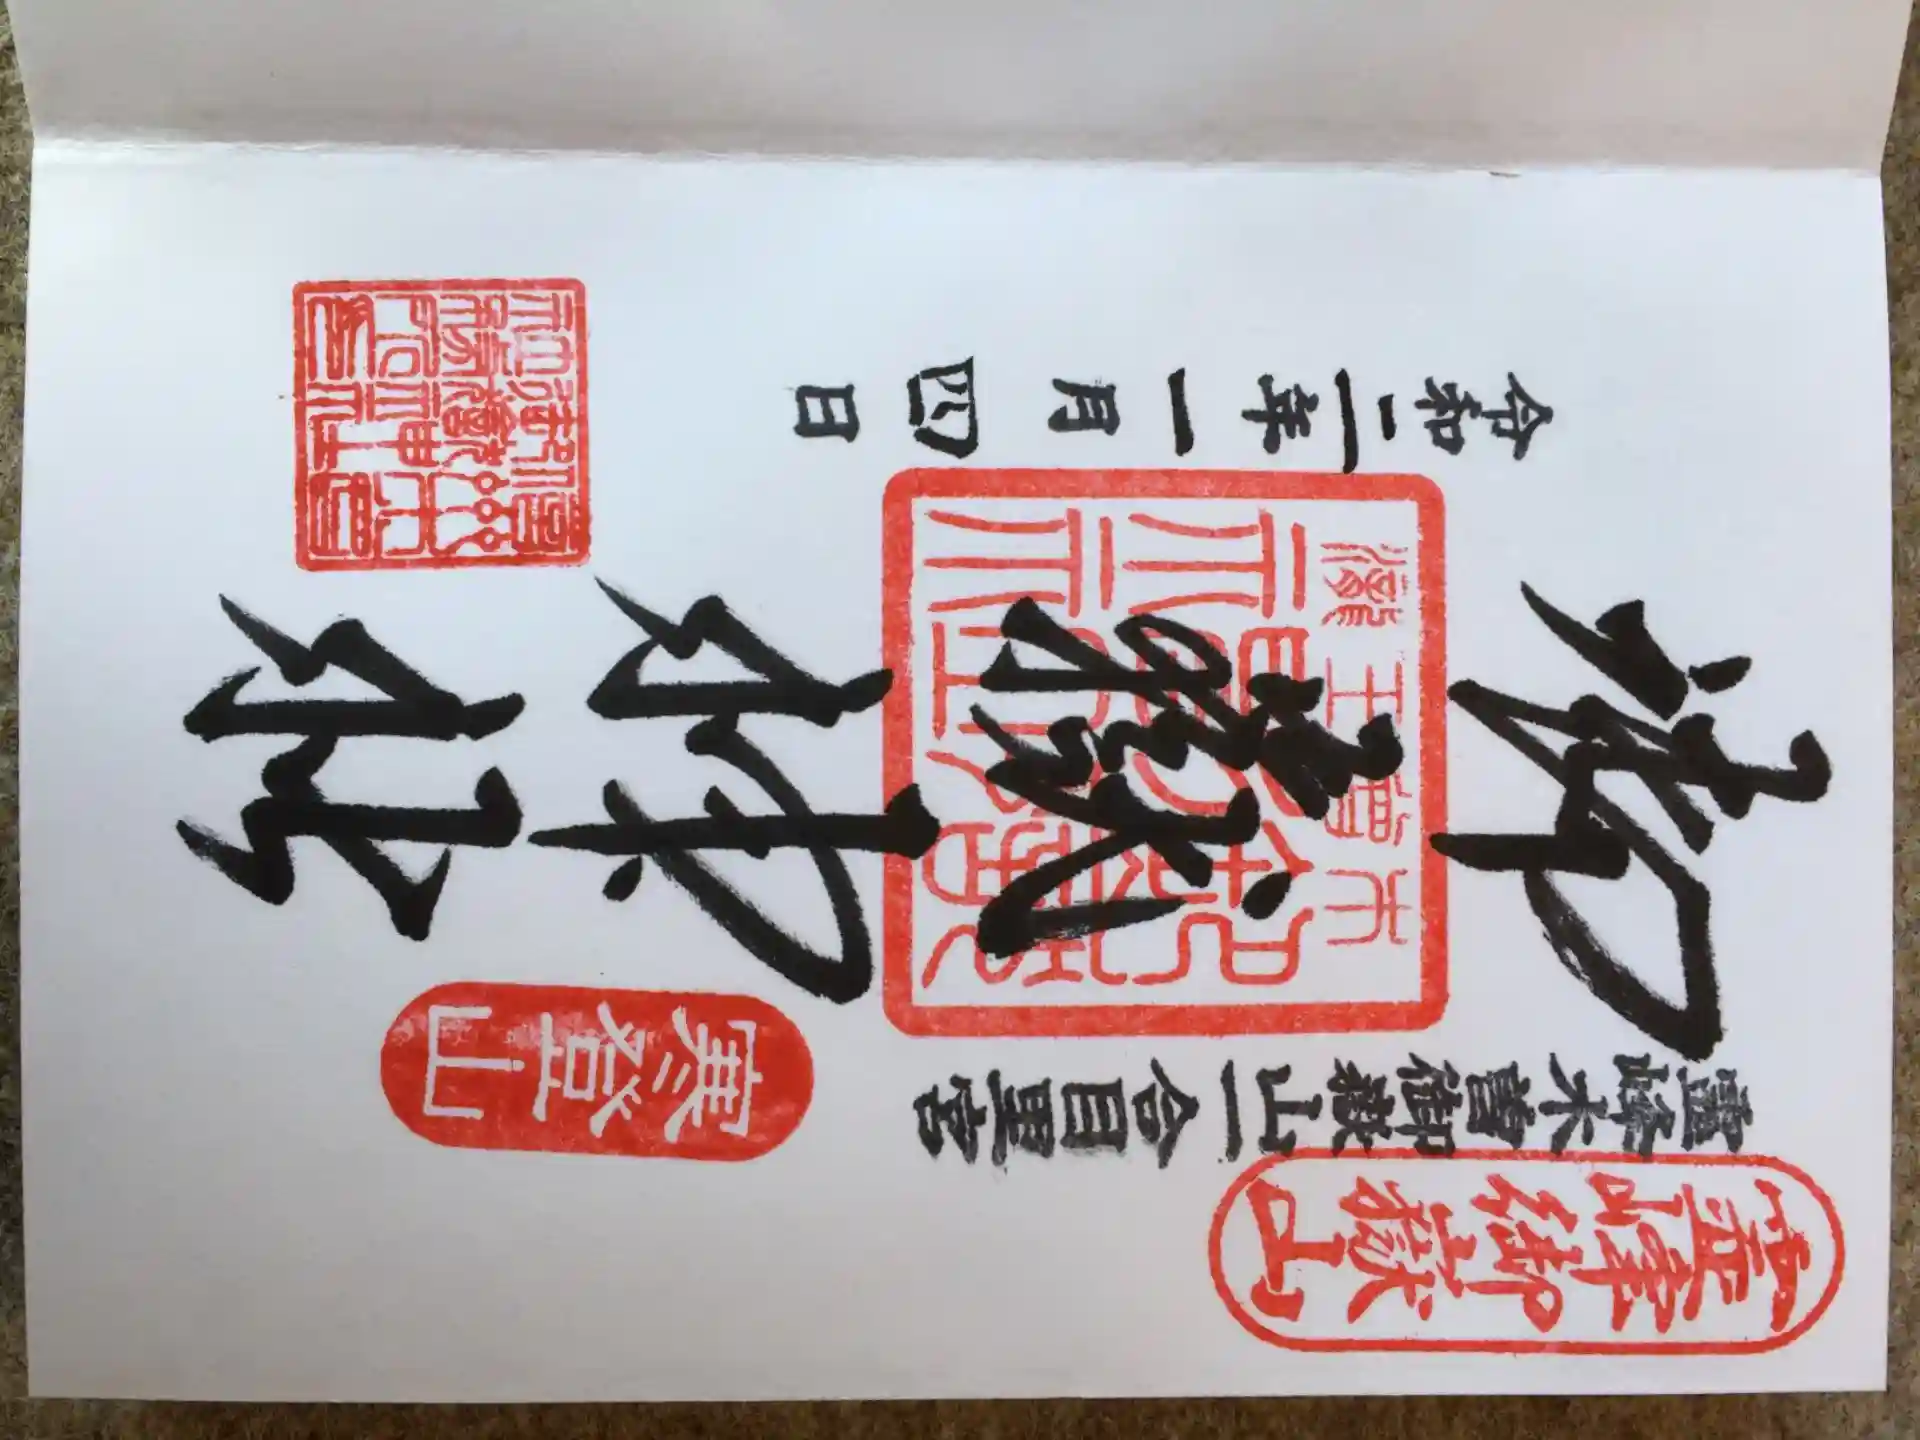 霊峰御嶽山
靈峰木曽御嶽山一合目里宮
寒登山
御嶽神社
令和二年一月四日